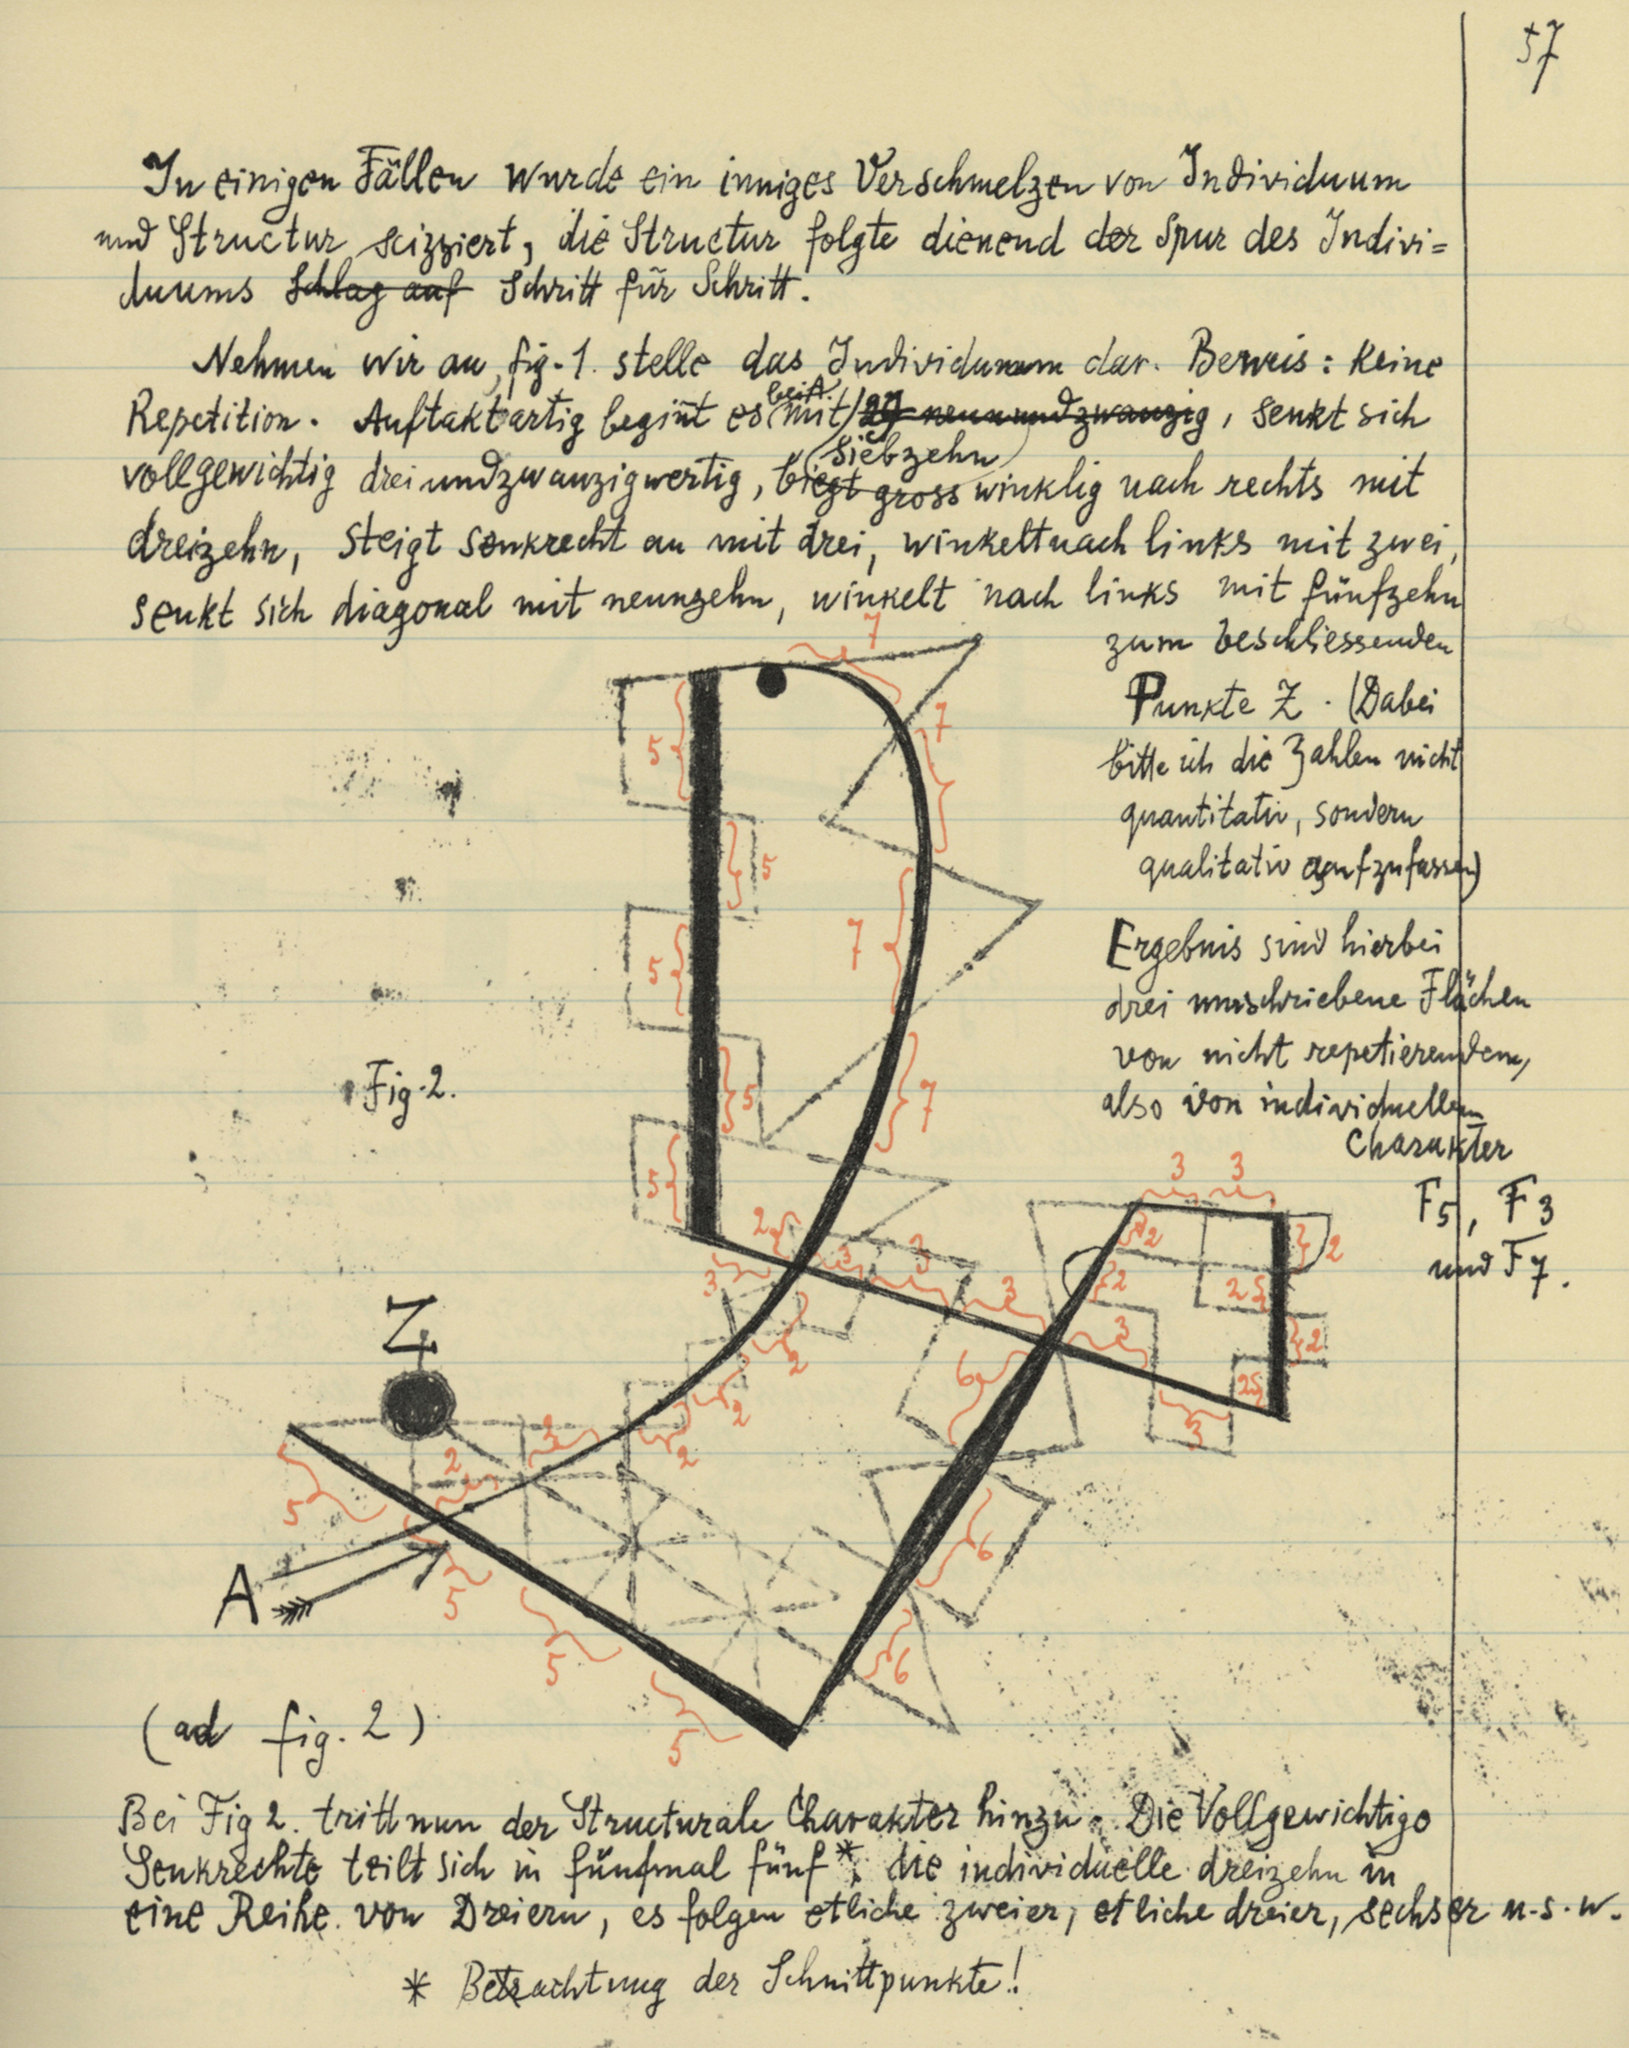 57
In einigen Fällen wurde ein inniges Verschmelzen von Individuum
und Structur scizziert, die Structur folgte dienend der Spur des Indivi=
duums Schlag auf Schritt für Schritt.
Nehmen wir an, fig. 1. stelle das Individuum dar. Beweis: Keine
bei A
Repetition. Auftaktartig begint es mit 29 neunundzwanzig, senkt sich
siebzehn
vollgewichtig dreiundzwanzigwertig, biegt grosswinklig nach rechts mit
dreizehn, steigt senkrecht an mit drei, winkelt nach links mit zwei,
senkt sich diagonal mit neunzehn, winkelt nach links mit fünfzehn
zum beschliessenden
Punkte Z. (Dabei
bitte ich die Zahlen nicht
quantitativ, sondern
qualitativ aufzufassen)
Ergebnis sind hierbei
drei umschriebene Flächen
von nicht repetierendem,
also von individuellem
Charakter
F5, F3
und F7.
7
7
5
5
7
5
Fig. 2.
5
7
5
3 3
2
3 3 3
3
2
2
2
2
2
3
6
2
2
3
2
2
Z
3
2
5
6
A
5
5
6
5
(ad fig. 2)
Bei Fig 2. tritt nun der Structurale Charakter hinzu. Die Vollgewichtige
Senkrechte teilt sich in fünfmal fünf*, die individuelle dreizehn in
eine Reihe von Dreiern, es folgen etliche zweier, etliche dreier, sechser u.s.w.
* Betrachtung der Schnittpunkte!